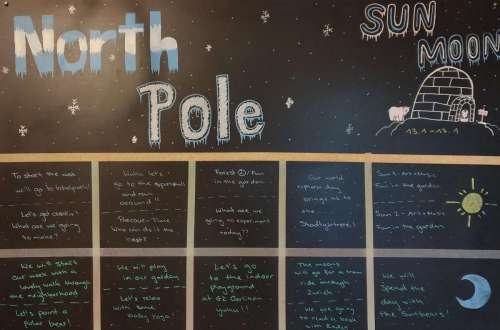 North
Pole
SUN
MOON
13.1 - 17.1
To start the week
we'll go to
Let's get creative!
What are we going
to make?
let's
go to the
and run
around!!
Parcour-Time
Who can do it the
best?
Forest / Fun
in the garden
What are we
going to experiment
today??
Our world
explorer day
brings us to
the
Sun 1 - Art + Music
Fun in the garden
Sun 2 - Art + Music
Fun in the garden
We will start
our week with a
lovely walk through
the neighborhood
Let's paint a
polar bear!
We will play
in our garden
Let's relax
with some
baby Yoga!
Let's go
to the indoor
playground
at GZ
The moons
will go for a tram
ride through
Zürich
We are going
to read a book
We will
Spend the
day with
the Sunbears!